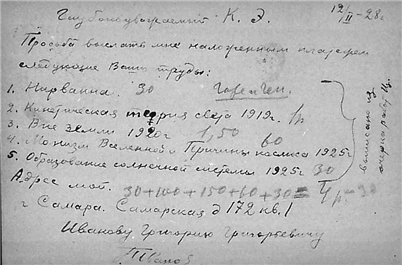 Глубокоуважаемый К. Э. 12/II-28 г.
Просьба выслать мне наложенным платежом
следующие Ваши труды:
1. Нирвана. 30 Горе и Ген.
2. Кинетическая теория света 1919г. 1р
3. Вне Земли 1920г 1,50
4. Монизм Вселенной и Причины космоса 1925г 60
5. Образование солнечной системы 1925г 30
Адрес мой. 30+100+150+60+30= 4р-30
г Самара. Самарская д 172 кв. 1
Иванову Григорию Григорьевичу
Иванов
выписано из